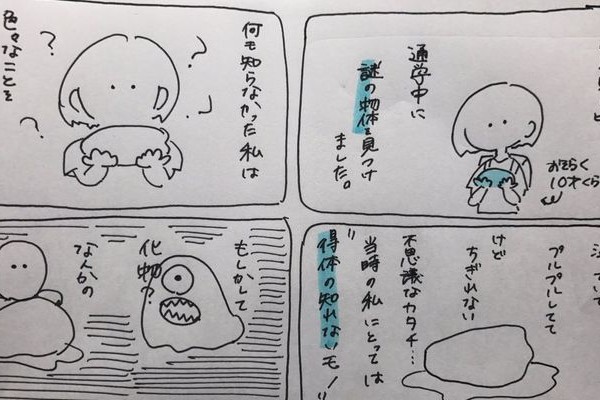 通学中に
謎の物体を見つけ
ました。
おそらく
10才くら
何も知らなかった私は
?
?
?
色々なことを
プルプルしてて
けど
ちぎれない
不思議なカタチ…
当時の私にとっては
"得体の知れないモ
もしかして
化物?
なんかの